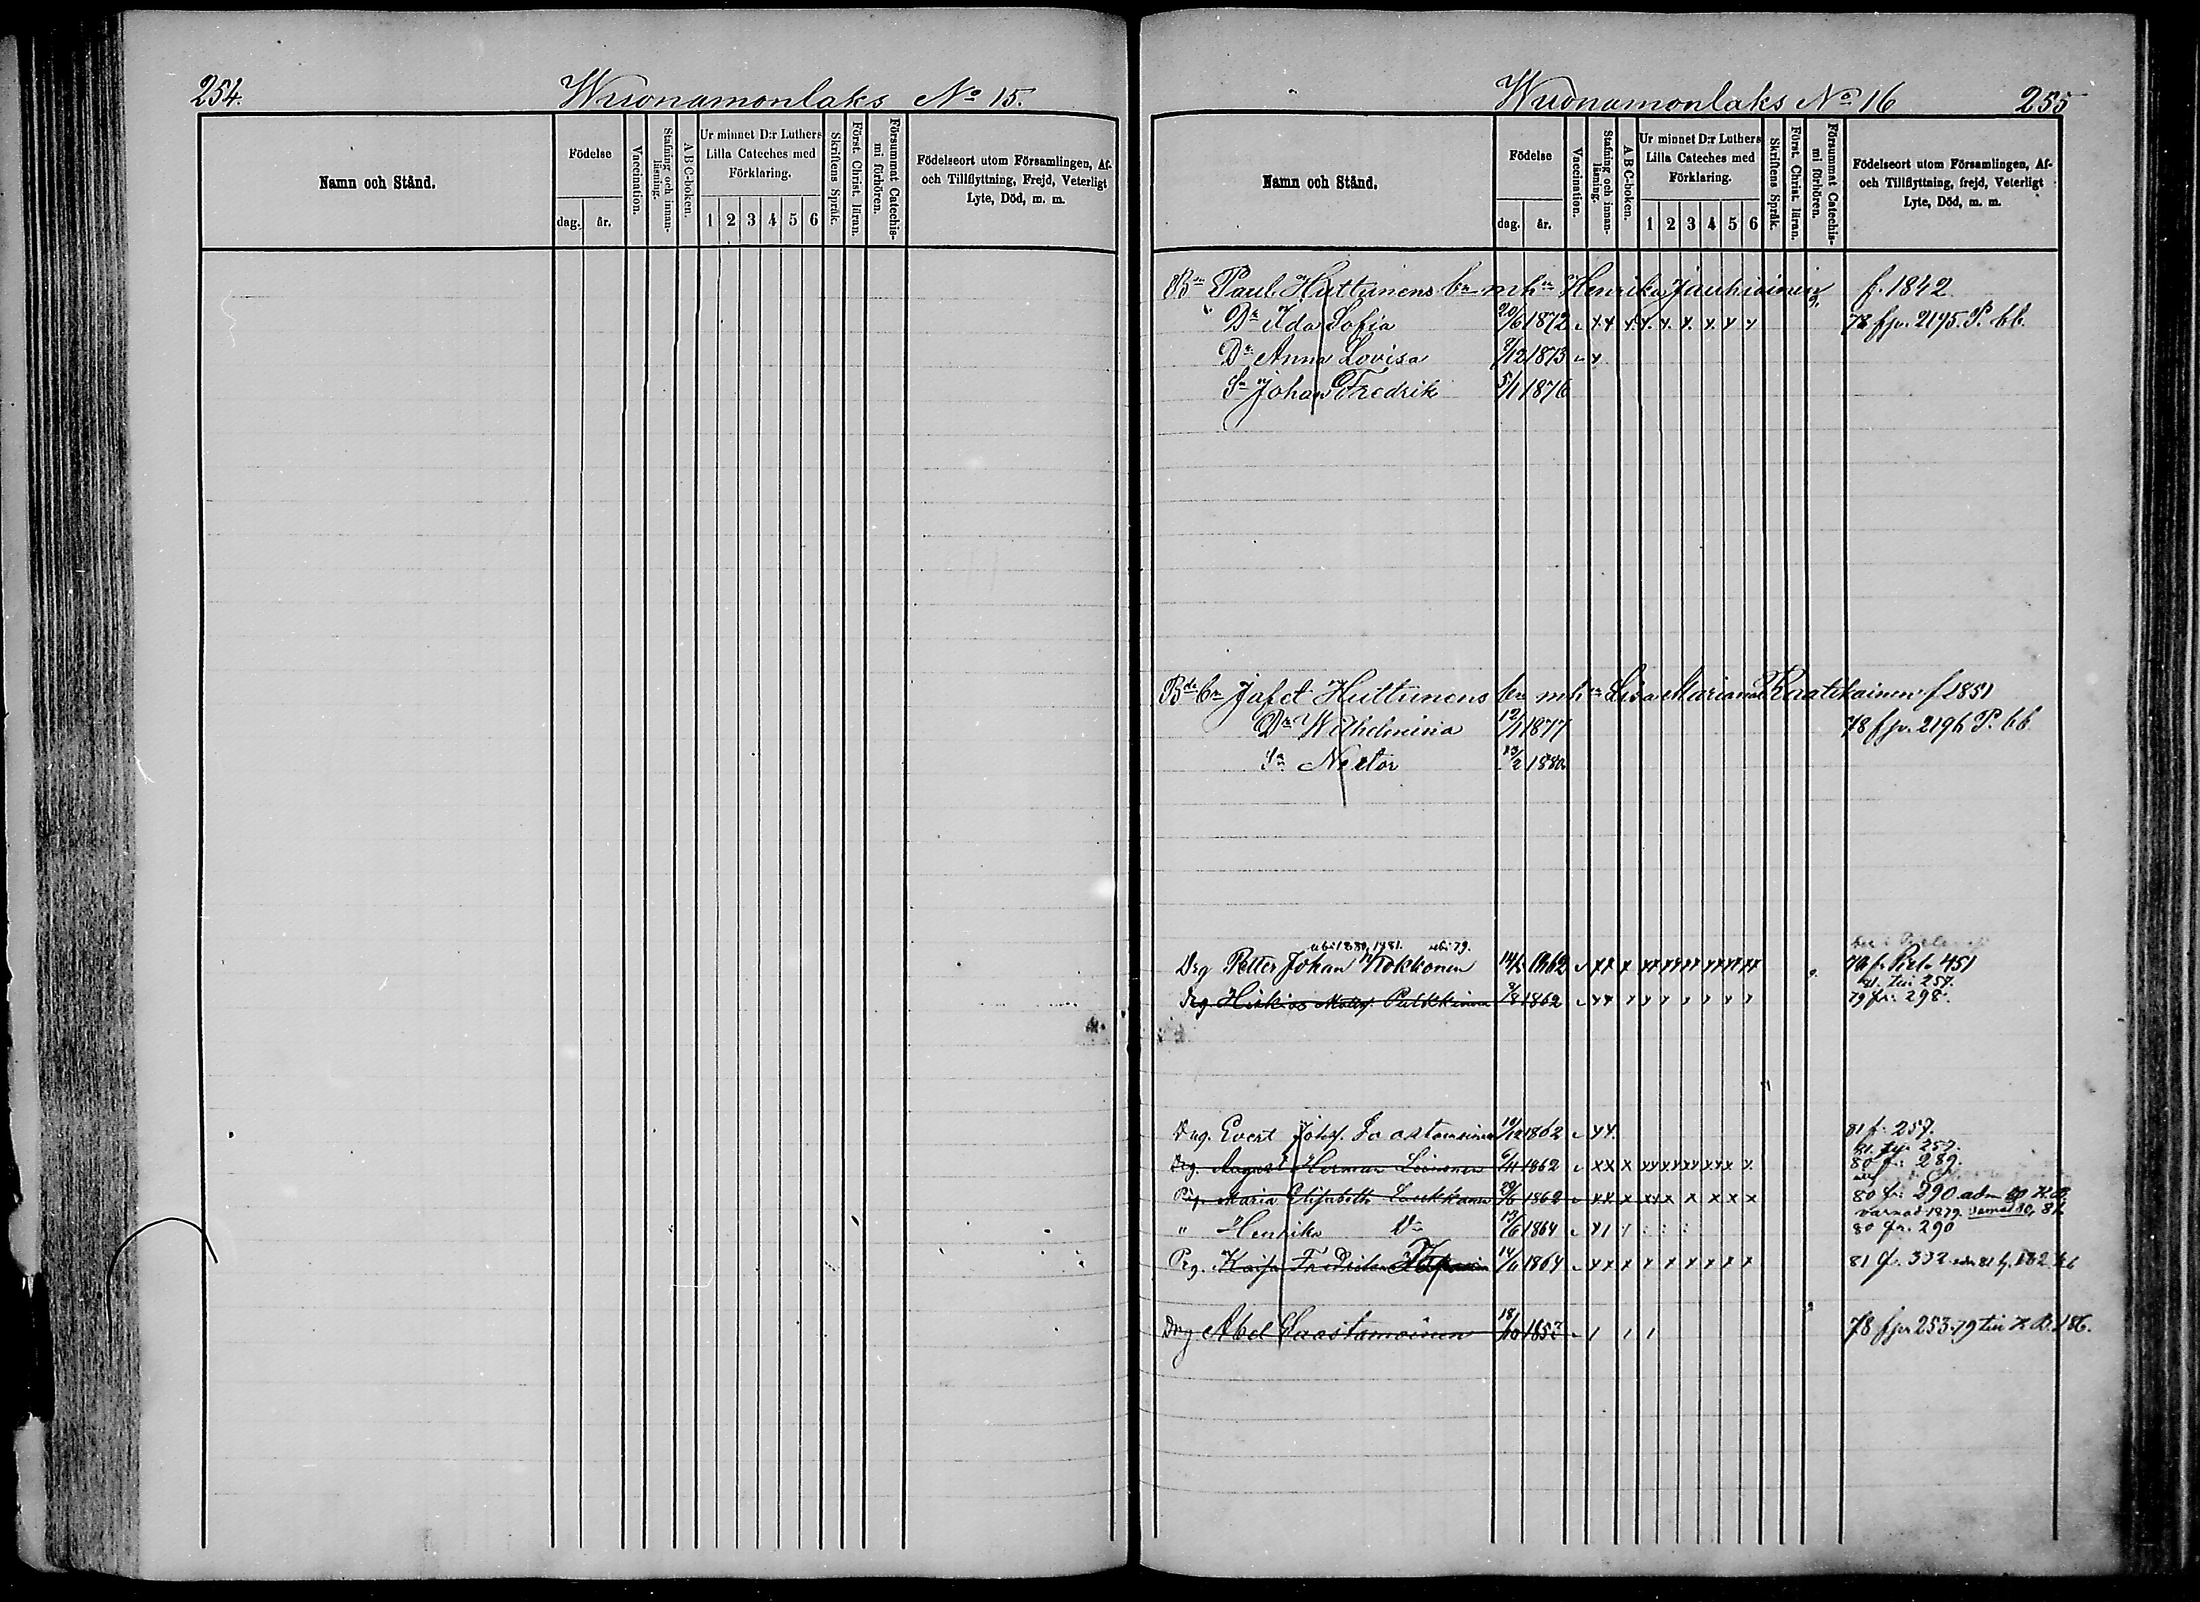 254.
Wuonamonlaks No 15.
Namn och Stånd.
Födelse
dag.
år.
Vaccination.
Stafning och innan-
läsning.
A B C-boken.
Ur minnet D:r Luthers
Lilla Cateches med
Förklaring.
1 2 3 4 5 6
Skriftens Språk.
Först. Christ. läran.
Försummat Catechis-
mi förhören.
Födelseort utom Församlingen, Af-
och Tillflyttning, Frejd, Veterligt
Lyte, Död, m. m.
Wuonamonlaks No 16
255
Namn och Stånd.
Födelse
dag.
år.
Vaccination.
Stafning och innan-
läsning.
A B C-boken.
Ur minnet D:r Luthers
Lilla Cateches med
Förklaring.
1 2 3 4 5 6
Skriftens Språk.
Först. Christ. läran.
Försummat Catechis-
mi förhören.
Födelseort utom Församlingen, Af-
och Tillflyttning, frejd, Veterligt
Lyte, Död, m. m.
Paul Huttunens bn m h Henrika Jauhiainen f. 1842
Dr Ida Sofia 20/6 1872 78 fr. 2195 P. bb.
Dr Anna Lovisa 1873
Sn Johan Fredrik 5/1 1876
Jafet Huttunens bn m h Lisa Mariana Raatikainen f 1851
Dr Wilhelmina 12/1 1877 78 fr. 2196 P. bb
Sn Nestor 1880
abs 1880, 1881. abs 79.
Drg Petter Johan Tokkonen 1862 451
81. tui 257.
Drg Hiskias Matts. Pulkkinen 1862 79 fr. 298.
Drg. Evert Johs. Saastamoinen 10/12 1862 81 fr. 257.
81. 257.
Drg. August Herman 6/4 1862 80 fr. 289.
Pig. Maria Elisabeth Laukkanen 29/6 1862 80 fr. 290 adm
varnad 1879.
" Henrika Dr 13/6 1864 80 fr. 290
Pig. Kaisa Fredrika 1864 81 fr. 332
Drg Abel Saastamoinen 18/10 1853 78 fr 253. 79 tui K. B. 186.